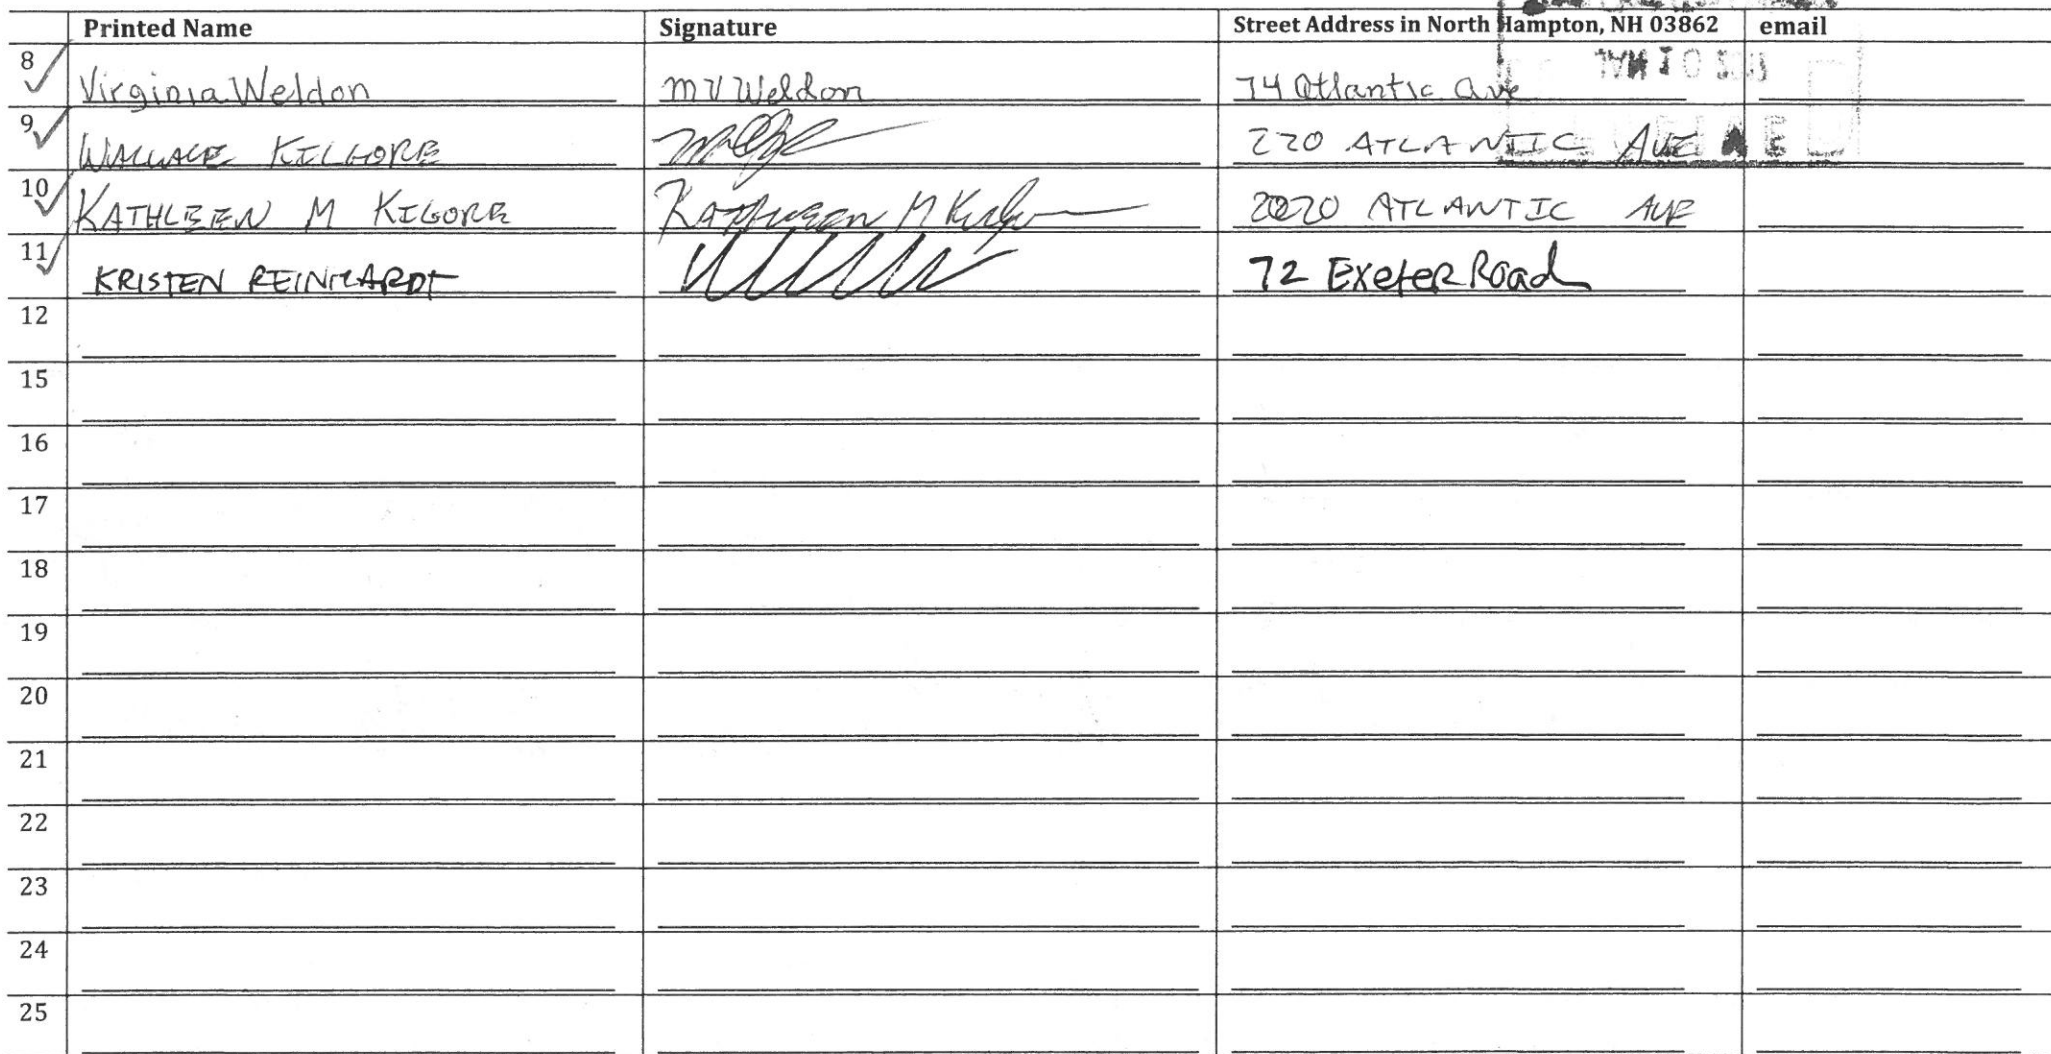 Printed Name Signature Street Address in North Hampton, NH 03862 email
8 Virginia Weldon MV Weldon 74 Atlantic Ave
9 WALLACE KILGORE 220 ATLANTIC AVE
10 KATHLEEN M KIGORE Kathleen M Kilgore 2020 ATLANTIC AVE
11 KRISTEN REINHARDT 72 Exeter Road
12
15
16
17
18
19
20
21
22
23
24
25